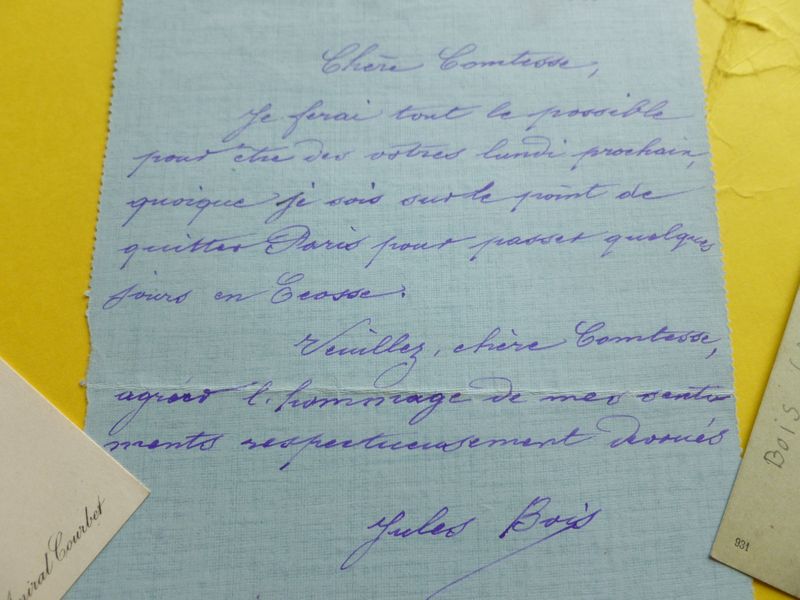 Chère Comtesse,
Je ferai tout le possible
pour être des vôtres lundi prochain,
quoique je sois sur le point de
quitter Paris pour passer quelques
jours en Ecosse.
Veuillez, chère Comtesse,
agréer l'hommage de mes senti
ments respectueusement dévoués
Jules Bois
miral Courbet
BOIS
931